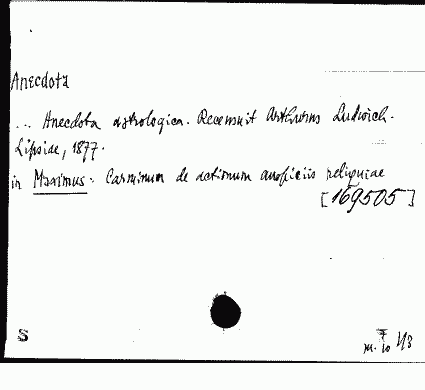 Anecdota
... Anecdota astrologica. Recensuit Arthurus Ludwich.
Lipsiae, 1877.
in Maximus. Carminum de actionum auspiciis reliquiae
[169505]
S